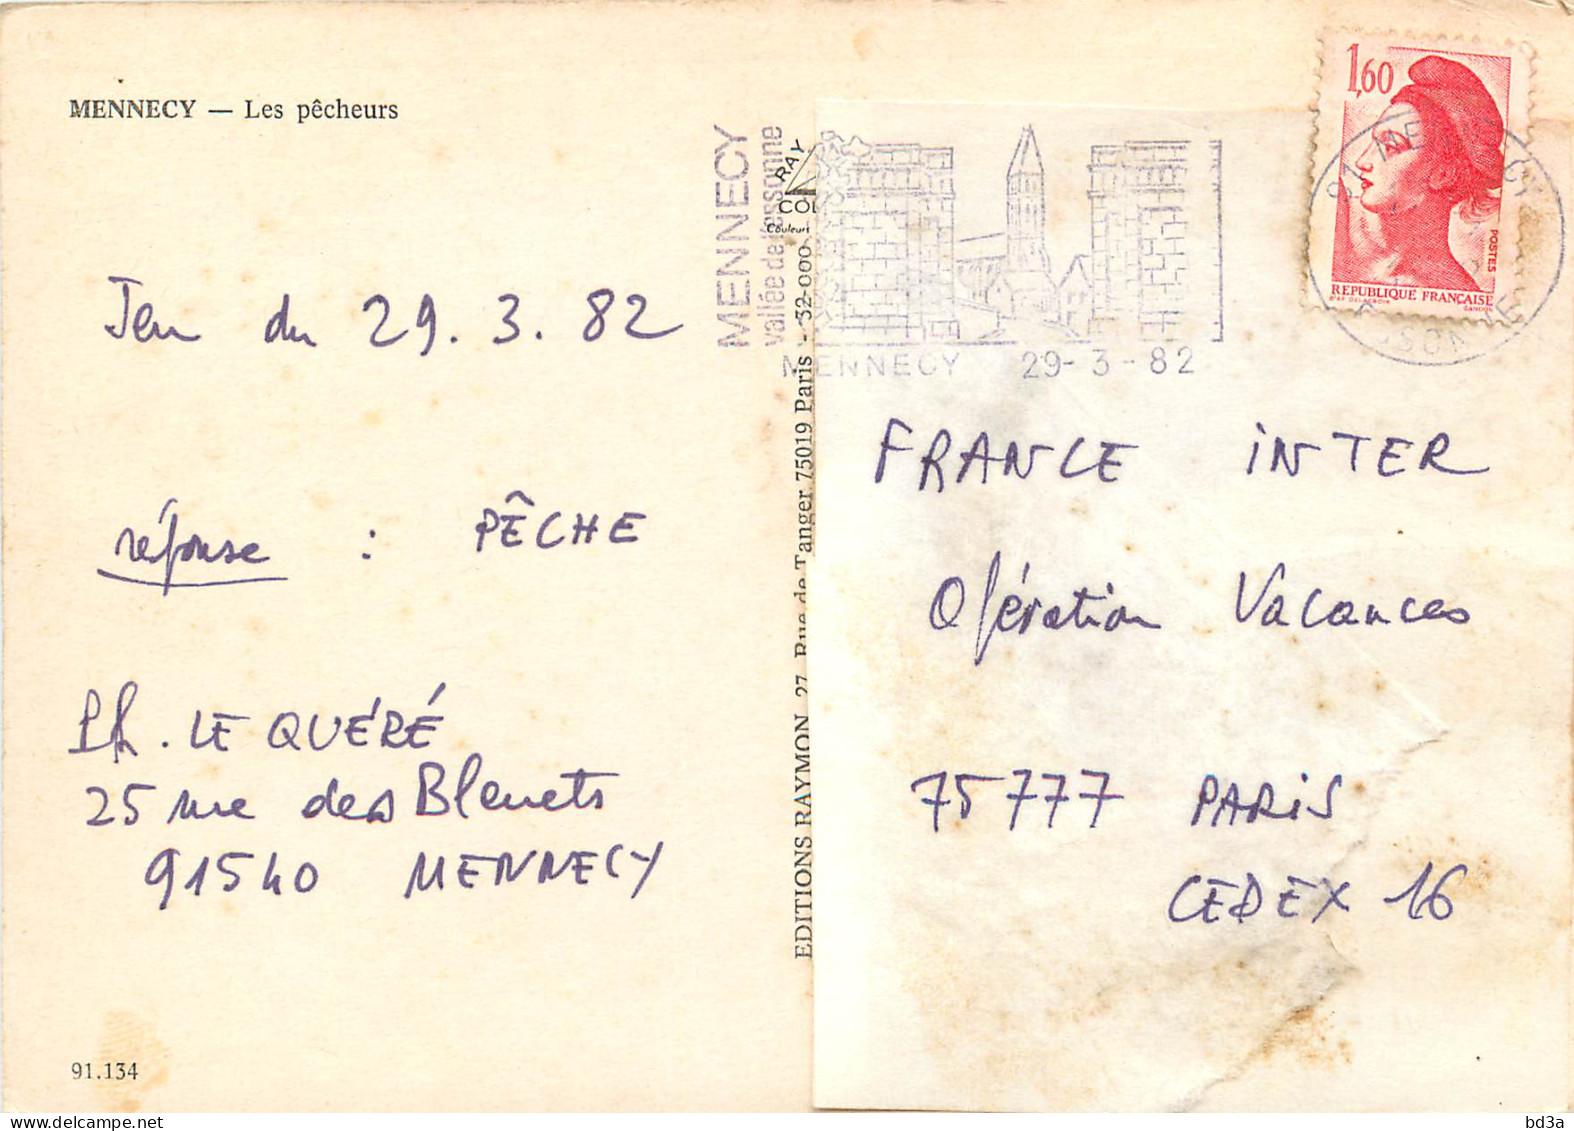 MENNECY — Les pêcheurs
Jeu du 29.3.82
réponse : PÊCHE
Ph. LE QUÉRÉ
25 rue des Bleuets
91540 MENNECY
91.134
EDITIONS RAYMON 27, Rue de Tanger 75019 Paris - 32-000
RAY
COL
Couleurs
MENNECY
vallée de l'essonne
MENNECY 29-3-82
1,60
POSTES
REPUBLIQUE FRANÇAISE
D'AP. DELACROIX GANDON
91 MENNECY
ESSONNE
FRANCE INTER
Opération Vacances
75777 PARIS
CEDEX 16
delcampe.net
bd3a